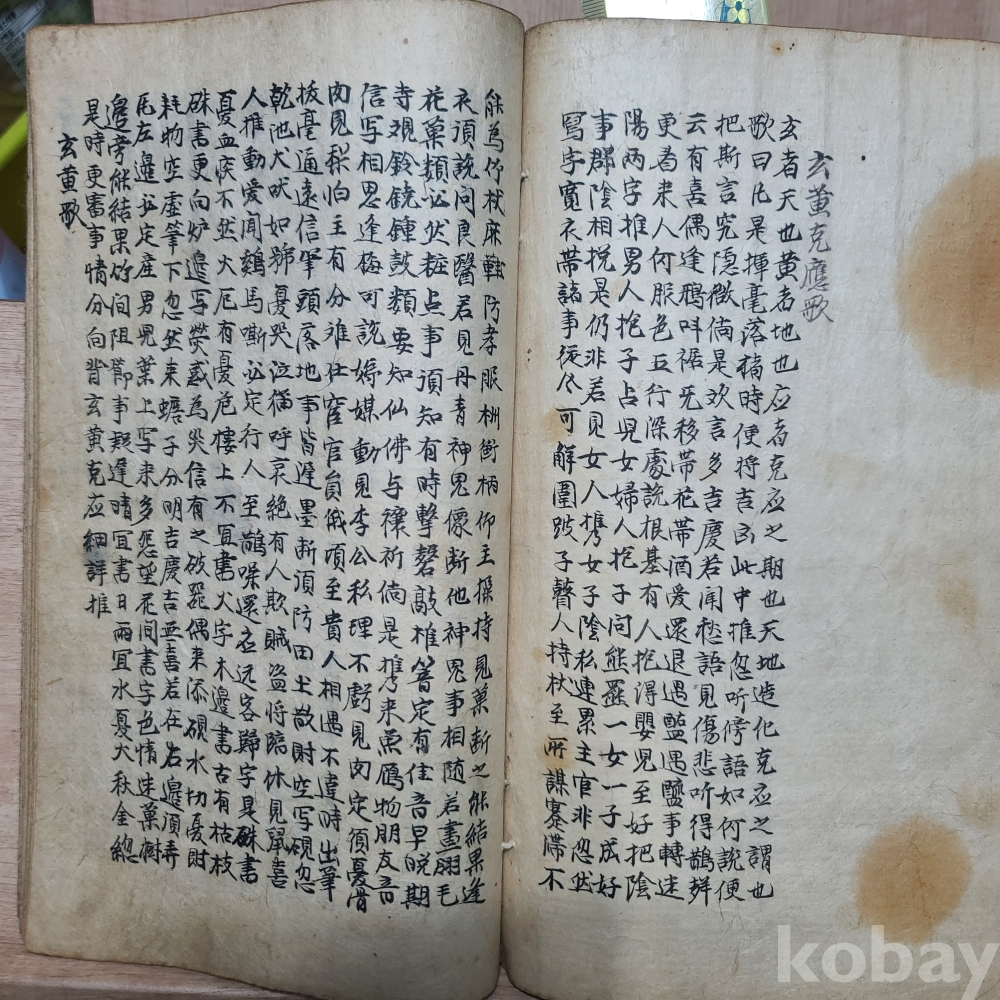 玄黃克應歌
玄者天也黃者地也应者克应之期也天地造化克应之謂也
歌曰凡是揮毫落楮時便將吉凶此中推忽听傍語如何說便
把斯言究隱微倘是欢言多吉慶若闻愁語見傷悲听得鵲辤
云有喜偶逢鴉叫禍旡移帶花帶酒爱還退遇盬遇鹽事轉迷
更看来人何服色五行深處說根基有人抱得嬰児至好把陰
陽兩字推男人抱子占児女婦人抱子问熊羆一女一子成好
事郡陰相挠是仍非若見女人携女子陰私連累主官非忽然
寫字寬衣帶諸事從今可解圍跛子瞽人持杖至所謀蹇滯不
能為竹杖麻鞋防孝服榭衝柄仰主操持見菓断之能結果逢
衣湏說问良醫若見丹青神鬼像断他神鬼事相随若畫翎毛
花菓類必然粧点事湏知有時擊磬敲椎箸定有佳音早晚期
寺观鈴鐃鍾鼓類要知仙佛与禳祈倘是携来魚鴈物朋友音
信写相思逢梅可說婷媒動見李公私理不虧見肉定須憂骨
肉見梨怕主有分难仕宦官員俄頃至貴人相遇不違時出筆
拔毫通遠信笔頭落地事皆遲墨断湏防田土散財空写硯忽
乾池犬吠如號憂哭泣猫呼哀絶有人欺賊盗将臨休見鼠喜
人推動爱闻鷄馬嘶必定行人至鵲噪還应远客歸字是硃書
憂血疾不然火厄有憂危樓上不宜書火字木邊書古有枯枝
硃書更向炉邉写熒惑為災信有之破甕偶来添硯水切憂財
耗物空虚筆下忽然来蟢子分明吉慶吉無喜若在右邉湏弄
瓦左邉必定産男児葉上写来多怨望花间書字色情迷菓樹
邉旁能結果竹间阻節事難逢晴冝書日雨冝水夏火秋金總
是時更審事情分向背玄黃克应細詳推
玄黄歌
kobay